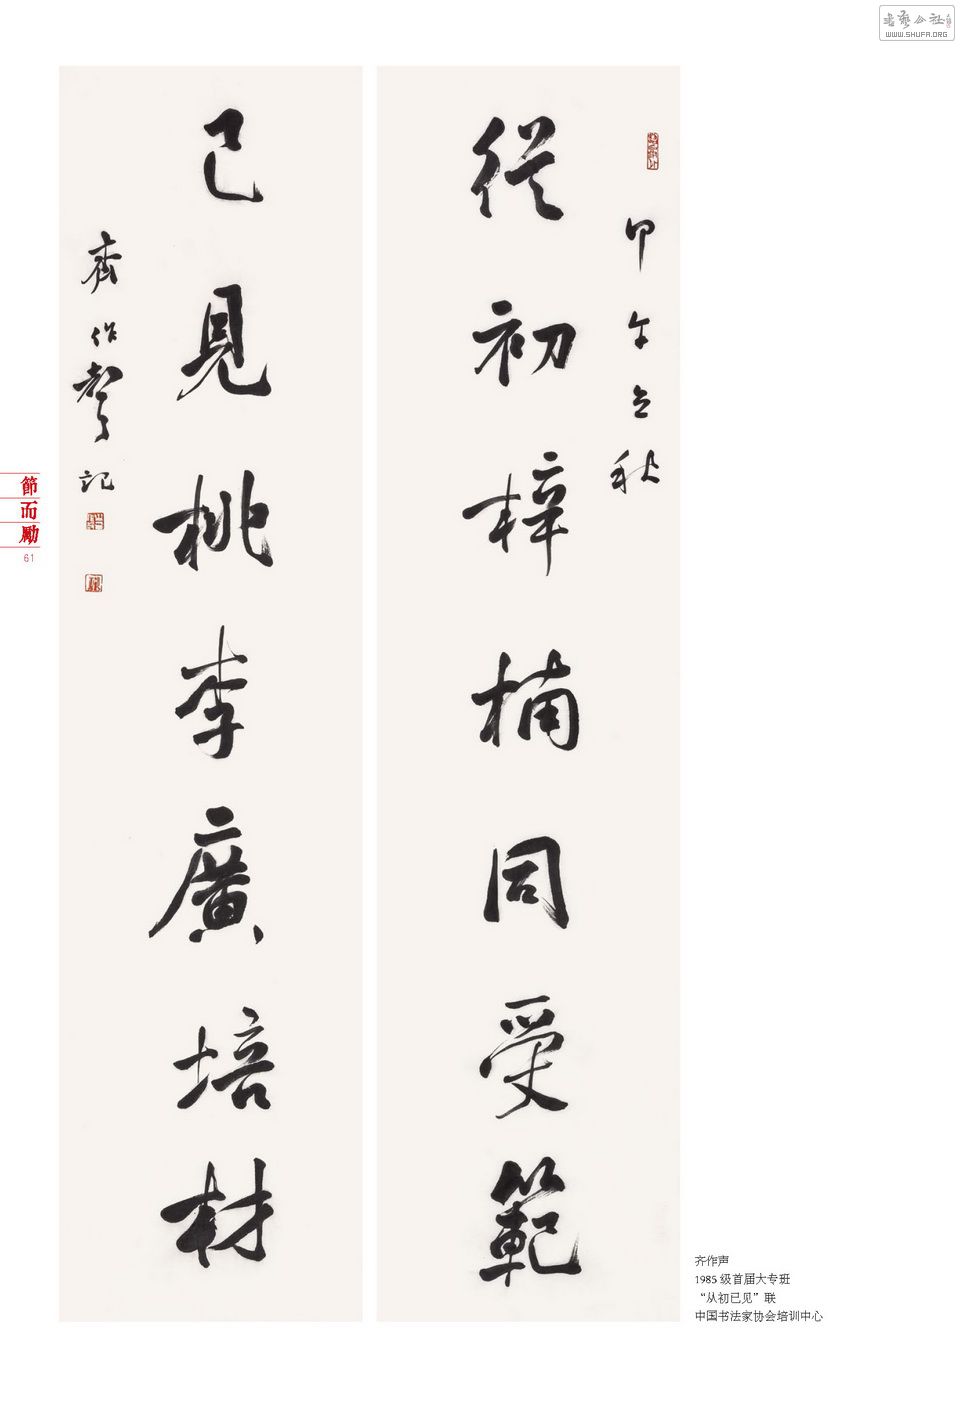 WWW.SHUFA.ORG
甲午立秋
從初梓楠同受範
已見桃李廣培材
齊作聲記
節而勵
61
齐作声
1985 级首届大专班
“从初已见”联
中国书法家协会培训中心